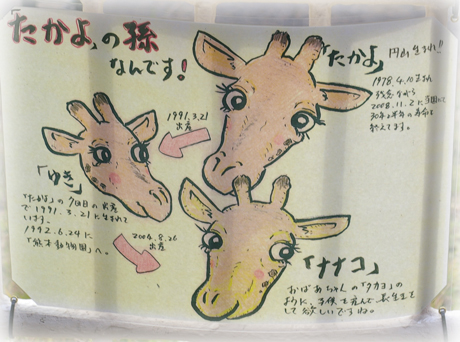 「たかよ」の孫
なんです！
「たかよ」
円山生まれ!!
1978.4.10生まれ
残念ながら
2008.11.2に当園にて
30年と半年の寿命を
終えてます。
1991.3.21
出産
「ゆき」
「たかよ」の7回目の出産
で1991.3.21に生まれて
います。
1992.6.24に
「熊本動物園」へ。
2004.8.26
出産
「ナナコ」
おばあちゃんの「タカヨ」の
ように、子供を産んで長生きを
して欲しいですね。